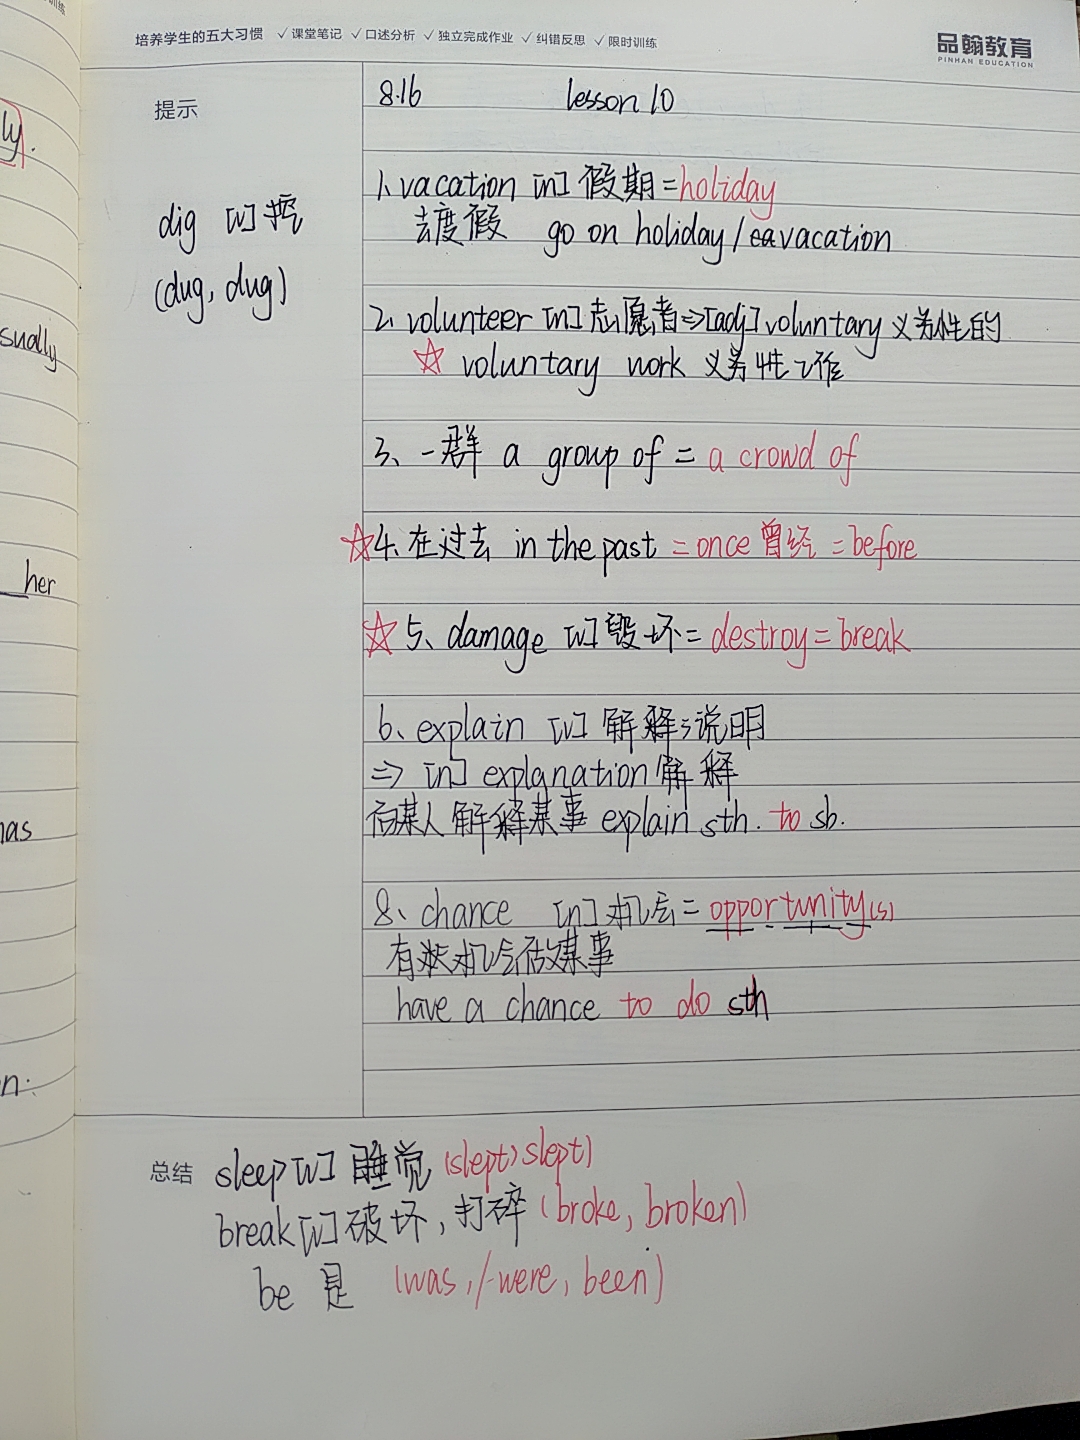 培养学生的五大习惯 ✓课堂笔记 ✓口述分析 ✓独立完成作业 ✓纠错反思 ✓限时训练
品翰教育
PINHAN EDUCATION
训练
ly.
sually
her
as
n:
提示
dig [v] 挖
(dug, dug)
8.16 lesson 10
1、vacation [n] 假期=holiday
去度假 go on holiday/vacation
2、volunteer [n] 志愿者⇒[adj] voluntary 义务性的
☆ voluntary work 义务性工作
3、一群 a group of = a crowd of
☆4、在过去 in the past = once 曾经 = before
☆5、damage [v] 毁坏= destroy = break
6、explain [v] 解释;说明
⇒ [n] explanation 解释
向某人解释某事 explain sth. to sb.
8、chance [n] 机会= opportunity(s)
有机会做某事
have a chance to do sth
总结
sleep [v] 睡觉 (slept, slept)
break [v] 破坏, 打碎 (broke, broken)
be 是 (was,/were, been)